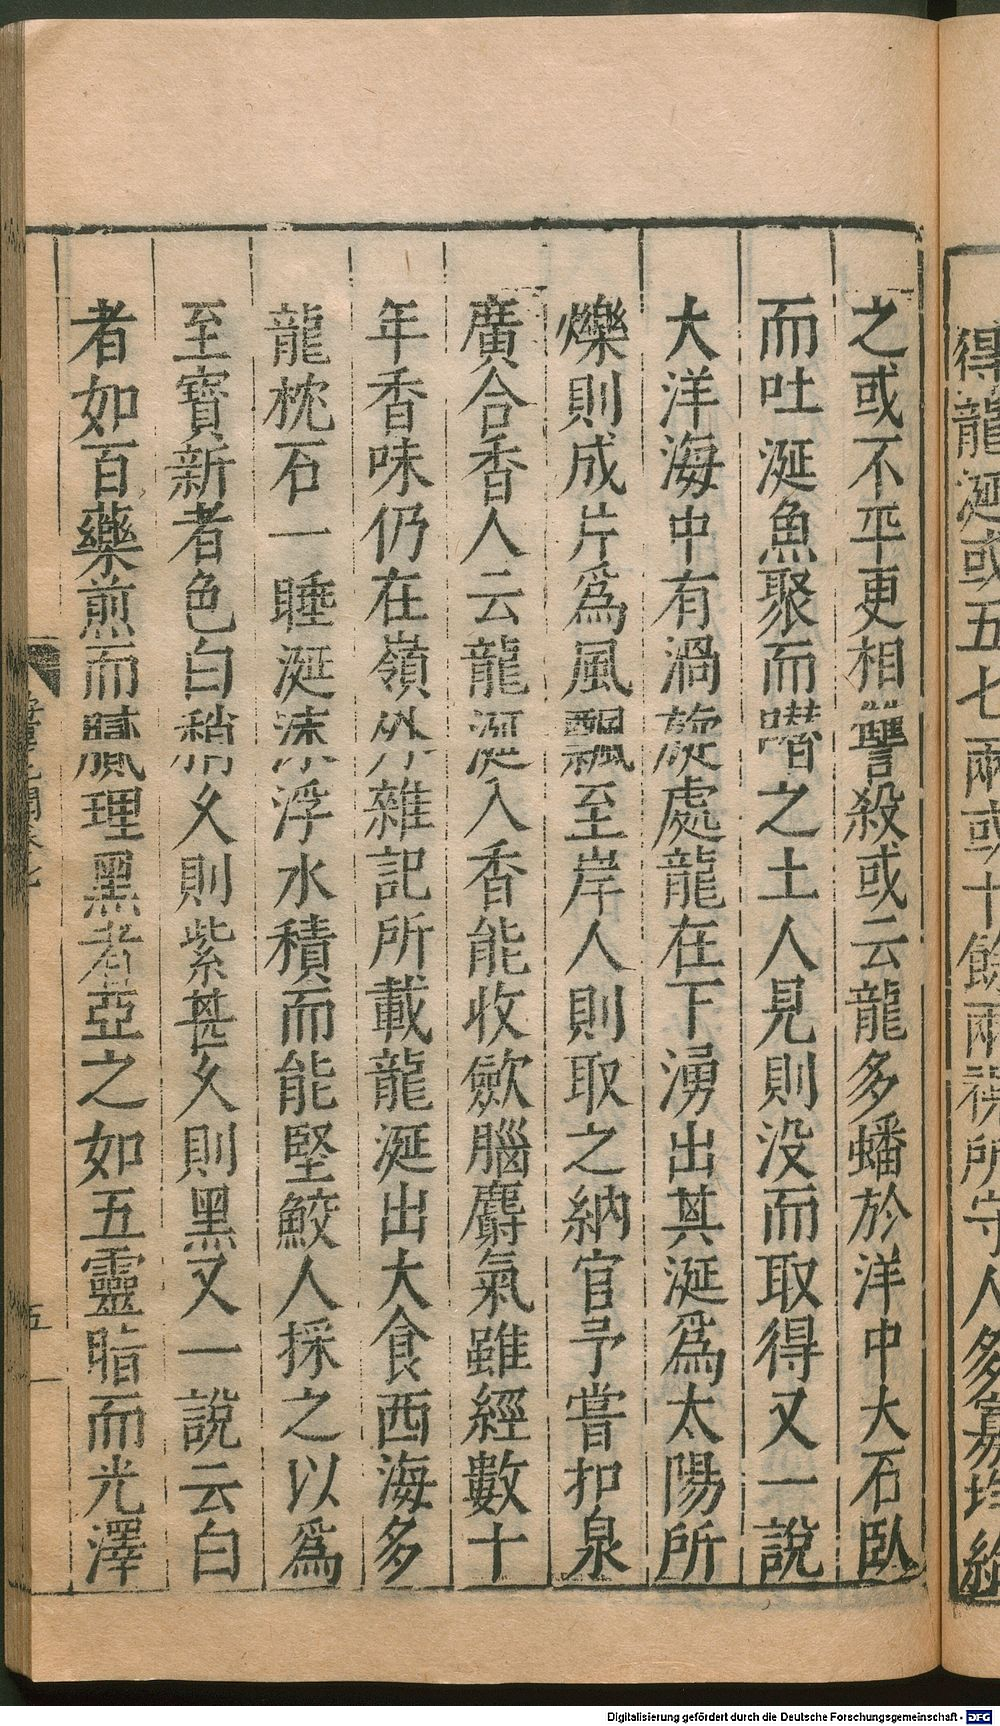 得龍涎或五七兩或十餘兩
所守人人多
之或不平更相讐殺或云龍多蟠於洋中大石臥
而吐涎魚聚而噆之土人見則没而取得又一説
大洋海中有渦旋處龍在下湧出其涎爲太陽所
爍則成片爲風飄至岸人則取之納官予嘗扣泉
廣合香人云龍涎入香能收歛腦麝氣雖經數十
年香味仍在嶺外雜記所載龍涎出大食西海多
龍枕石一睡涎沫浮水積而能堅鮫人採之以爲
至寳新者色白稍久則紫甚久則黑又一説云白
者如百藥煎而膩理黑者亞之如五靈脂而光澤
五
Digitalisierung gefördert durch die Deutsche Forschungsgemeinschaft - DFG